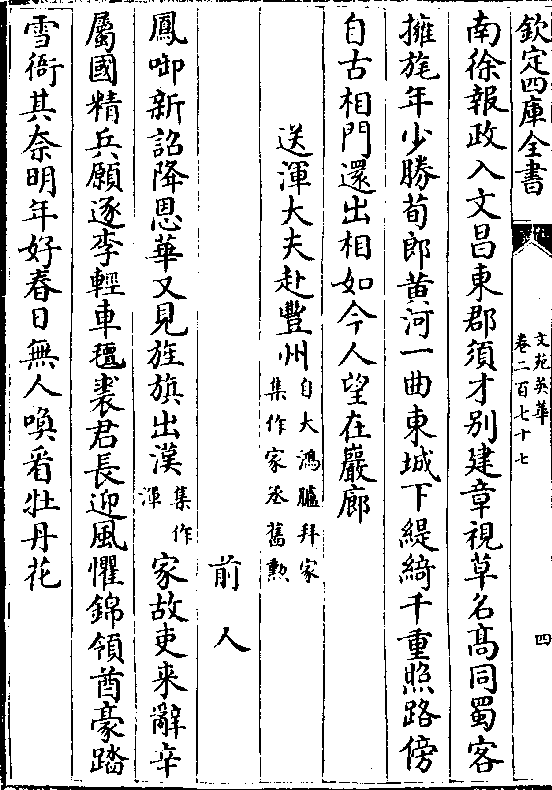 欽定四庫全書
文苑英華
卷二百七十七
四
南徐報政入文昌東郡須才别建章視草名髙同蜀客
擁旄年少勝荀郎黄河一曲東城下緹綺千重照路傍
自古相門還出相如今人望在巖廊
送渾大夫赴豐州自大鴻臚拜家
集作家丞舊勲
前人
鳳㘅新詔降恩華又見旌旗出漢集作
渾家故吏来辭辛
屬國精兵願逐李輕車氊裘君長迎風懼錦領酋豪踏
雪衙其奈明年好春日無人喚看牡丹花